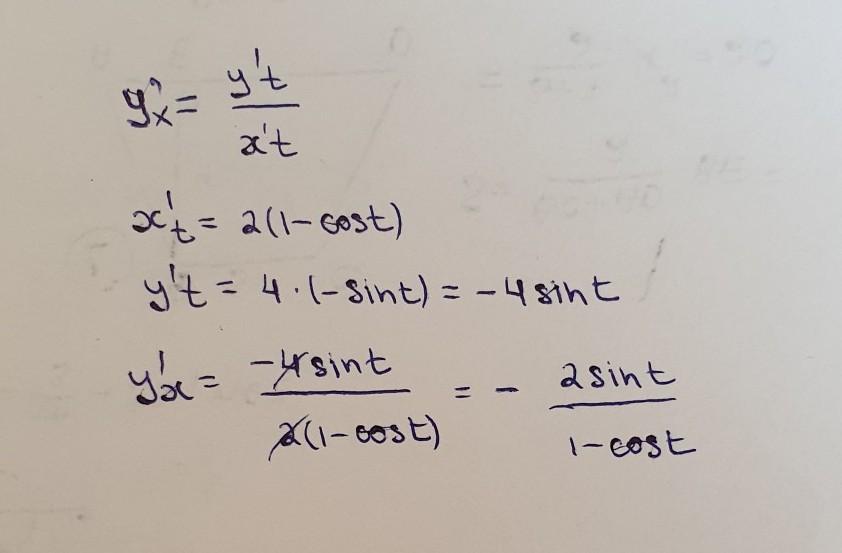 y'x = y't / x't
x't = 2(1-cost)
y't = 4·(-sint) = -4sint
y'x = -4sint / 2(1-cost) = - 2sint / 1-cost